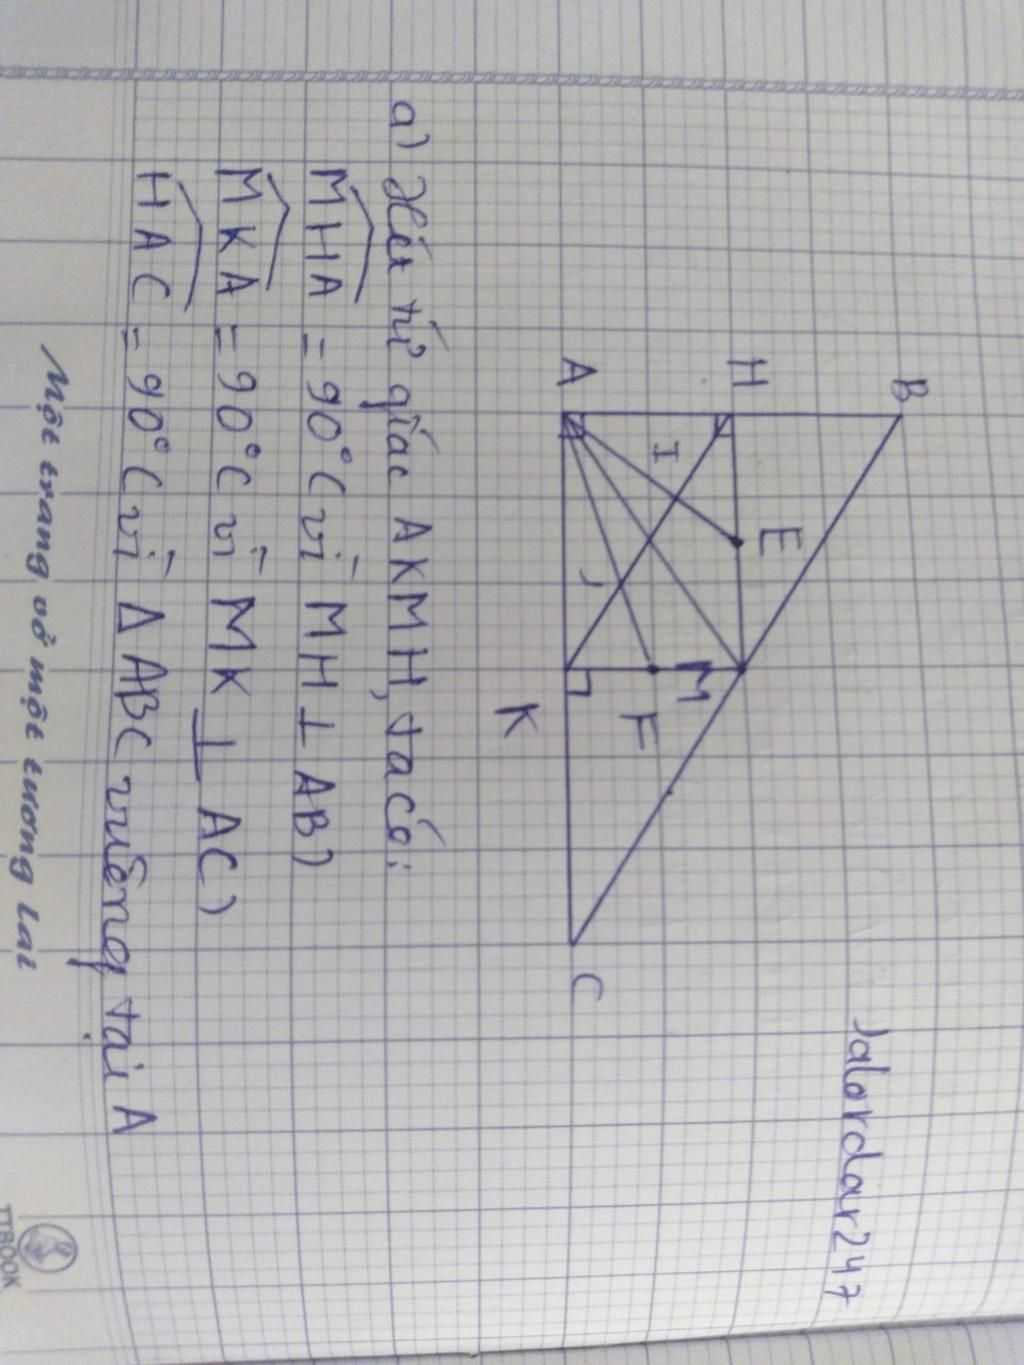 Jalordar247
B
H
E
I
M
F
J
A
K
C
a) Xét tứ giác AKMH, ta có:
MHA = 90° (vì MH ⊥ AB)
MKA = 90° (vì MK ⊥ AC)
HAC = 90° (vì Δ ABC vuông tại A
Một trang vở một tương lai
TTBOOK